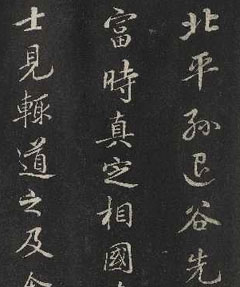 北平孙退谷先
富時真定相國
士見輒道之及